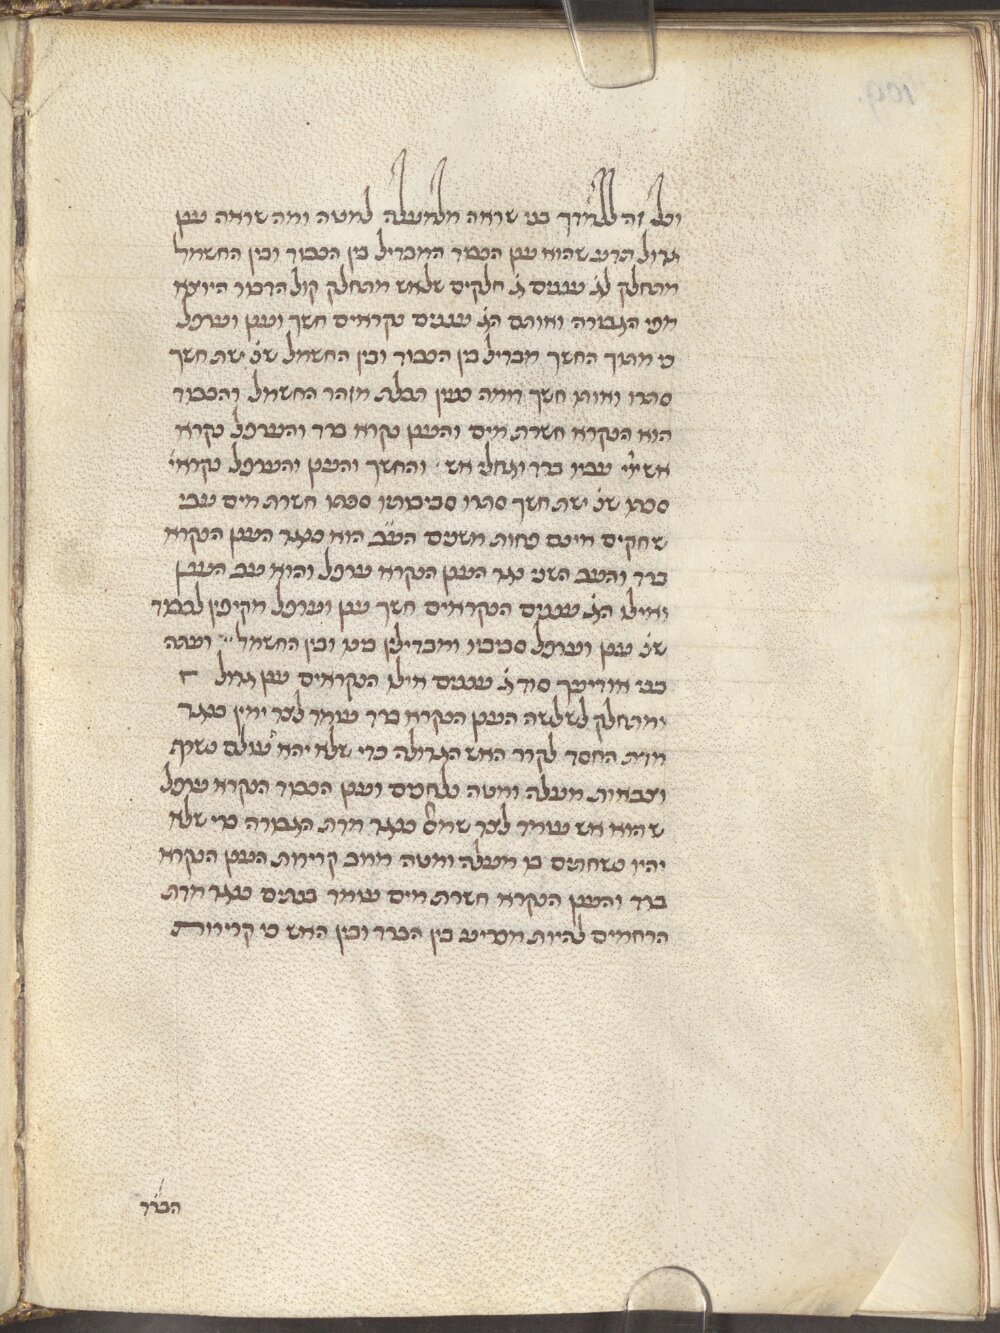 וכל זה ללמדך בני שראה מלמעלה למטה ומה שראה ענן
גדול הרע שהוא ענן הכבוד המבדיל בין הכבוד ובין החשמל
מתחלק לג׳ עננים ג׳ חלקים שלאש מתחלק קול הדבור היוצא
מפי הגבורה ואותם הג׳ עננים נקראים חשך וענן וערפל
כי מתוך החשך מבדיל בין הכבוד ובין החשמל שנ׳ ישת חשך
סתרו ואותו חשך דומה כעין תכלת מזהר החשמל והכבוד
הוא הנקרא חשרת מים והענן נקרא ברד והערפל נקרא
אש עביו ברד וגחלי אש והחשך והענן והערפל נקראי׳
סכתו שנ׳ ישת חשך סתרו סביבותיו סכתו חשרת מים עבי
שחקים אינם פחות משנים העב הוא כנגד הענן הנקרא
ברד והעב השני נגד הענן הנקרא ערפל והוא עב הענן
ואילו הג׳ עננים הנקראים חשך ענן וערפל מקיפין לכבוד
שנ׳ ענן וערפל סביביו ומבדילין בינו ובין החשמל ועתה
בני אודיעך סוד ג׳ עננים אילו הנקראים ענן גדול
ומתחלק לשלשה הענן הנקרא ברד עומד לצד ימין כנגד
מדת החסד לקרר האש הגדולה כדי שלא יהא עולם נשרף
וצבאות מעלה ומטה נלחמים וענן הכבוד הנקרא ערפל
שהוא אש עומד לצד שמאל כנגד מדת הגבורה כדי שלא
יהיו נשחתים בו מעלה ומטה מרוב קרירות הענן הנקרא
ברד והענן הנקרא חשרת מים עומד בנתים כנגד מדת
הרחמים להיות מכריע בין הברד ובין האש כי קרירות
הברד